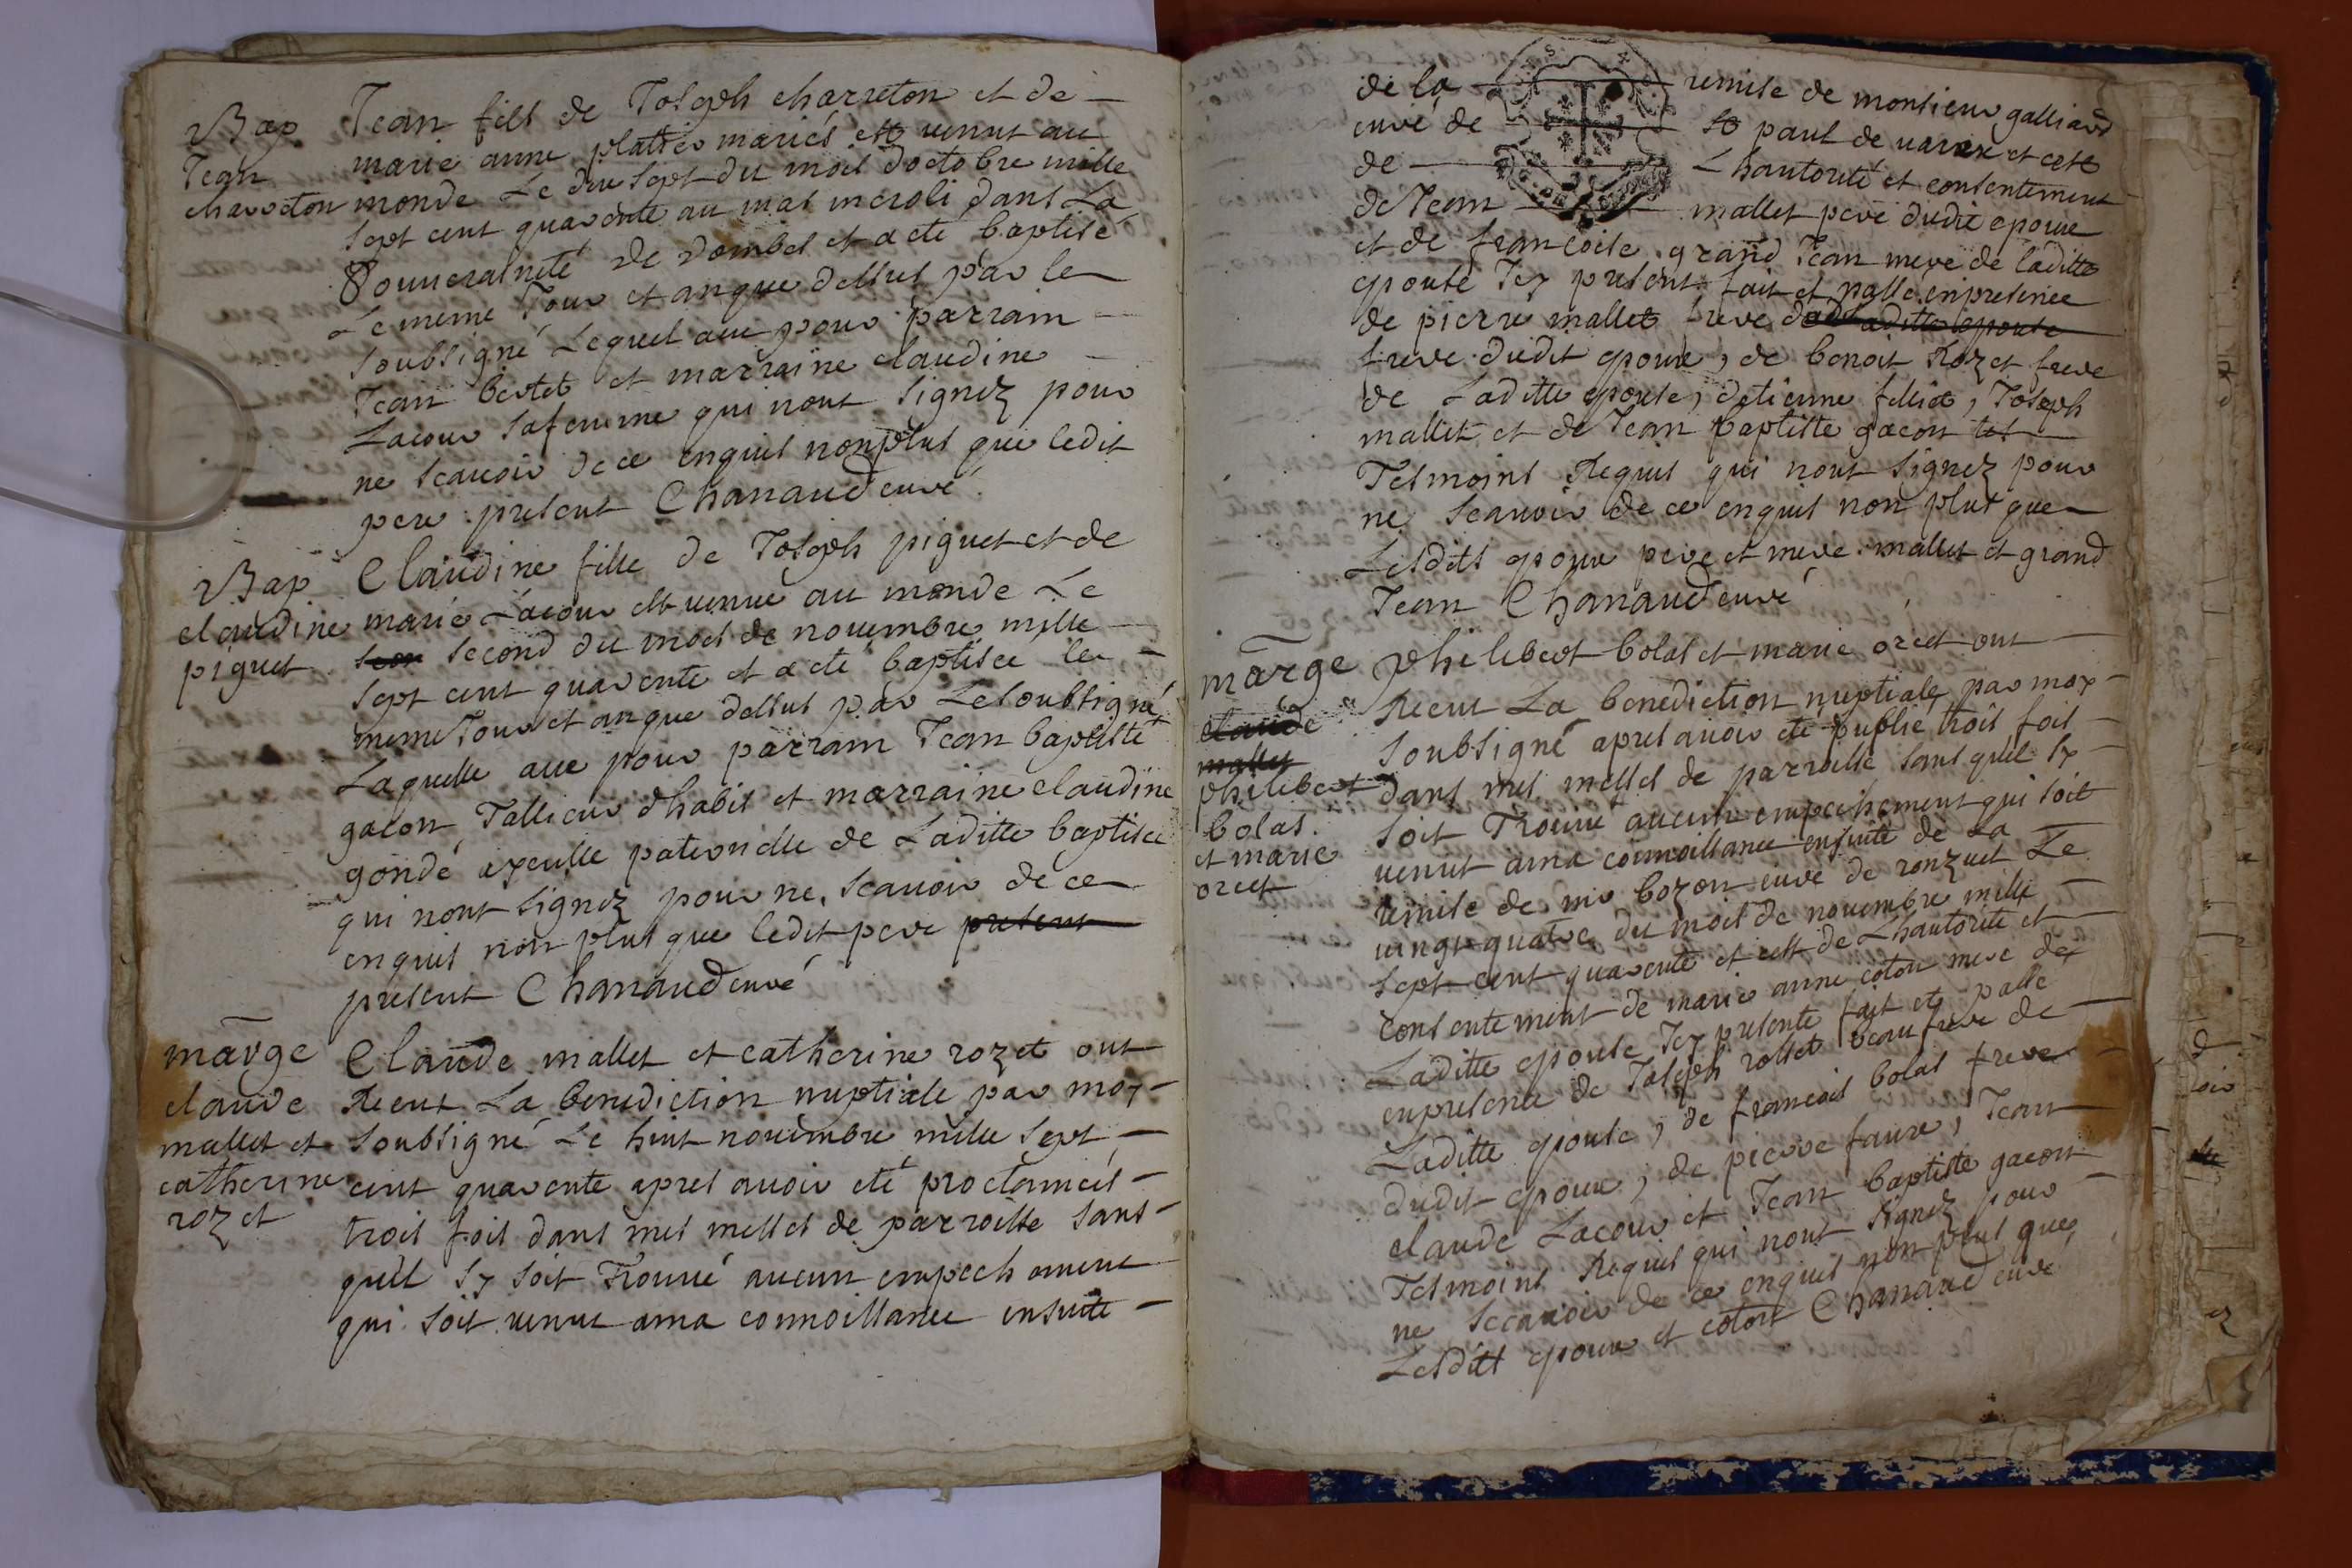 Bap
Jean
charreton
Jean fils de Joseph charreton et de
marie anne platte mariés est venut au
monde Le dix sept du mois doctobre mille
sept cent quarente au mas meroli dans La
Souveraineté de Dombes et a eté baptisé
Le meme Jour et an que dessus par le
soubsigné Lequel a eu pour parrain
Jean bertet et marraine claudine
Lacour sa femme qui nont signez pour
ne scavoir de ce enquis non plus que ledit
pere present Chanaud curé
Bap
claudine
piquet
Claudine fille de Joseph piquet et de
marie Lacour est venue au monde Le
second du mois de novembre mille
sept cent quarente et a eté baptisée le
meme Jour et an que dessus par Le soubsigné
Laquelle a eue pour parrain Jean baptiste
gacon Tallieur dhabis et marraine claudine
gondé ayeulle paternelle de Laditte baptisée
qui nont signez pour ne scavoir de ce
enquis non plus que ledit pere present
present Chanaud curé
marge
claude
mallet et
catherine
rozet
Claude mallet et catherine rozet ont
Receut La benediction nuptiale par moy
soubsigné Le huit novembre mille sept
cent quarente apres avoir eté proclameés
trois fois dans mes messes de parroisse sans
quil sy soit Trouvé aucun empechement
qui soit venut ama connoissance ensuite
de la remise de monsieur galliard
curé de st paul de varax et cest
de Lhautorité et consentement
de Jean mallet pere dudit epoux
et de francoise grand Jean mere de laditte
epouse Jcy present fait et passe en presence
de pierre mallet frere de laditte epouse
frere dudit epoux, de benoit Rozet frere
de Laditte epouse, detienne felix, Joseph
mallet et de Jean baptiste gacon tes
Tesmoins Requis qui nont signez pour
ne scavoir de ce enquis non plus que
Lesdits epoux pere et mere mallet et grand
Jean Chanaud curé
marge
claude
mallet
philibert
bolas
et marie
orcet
philibert bolas et marie orcet ont
Receut La benediction nuptiale par moy
soubsigné apres avoir eté publié trois fois
dans mes messes de parroisse sans quil sy
soit Trouvé aucun empechement qui soit
venut ama connoissance ensuite de La
remise de mr bozon curé de ronzuel Le
vingt quatre du mois de novembre mille
sept cent quarente et cest de Lhautorité et
consentement de marie anne coton mere de
Laditte epouse Jcy presente fait et passé
en presence de Joseph rosset beau frere de
Laditte epouse, de francois bolas frere
dudit epoux, de pierre faure, Jean
claude Lacour et Jean baptiste gacon
Tesmoins Requis qui nont signez pour
ne scavoir de ce enquis non plus que
Lesdits epoux et coton Chanaud curé